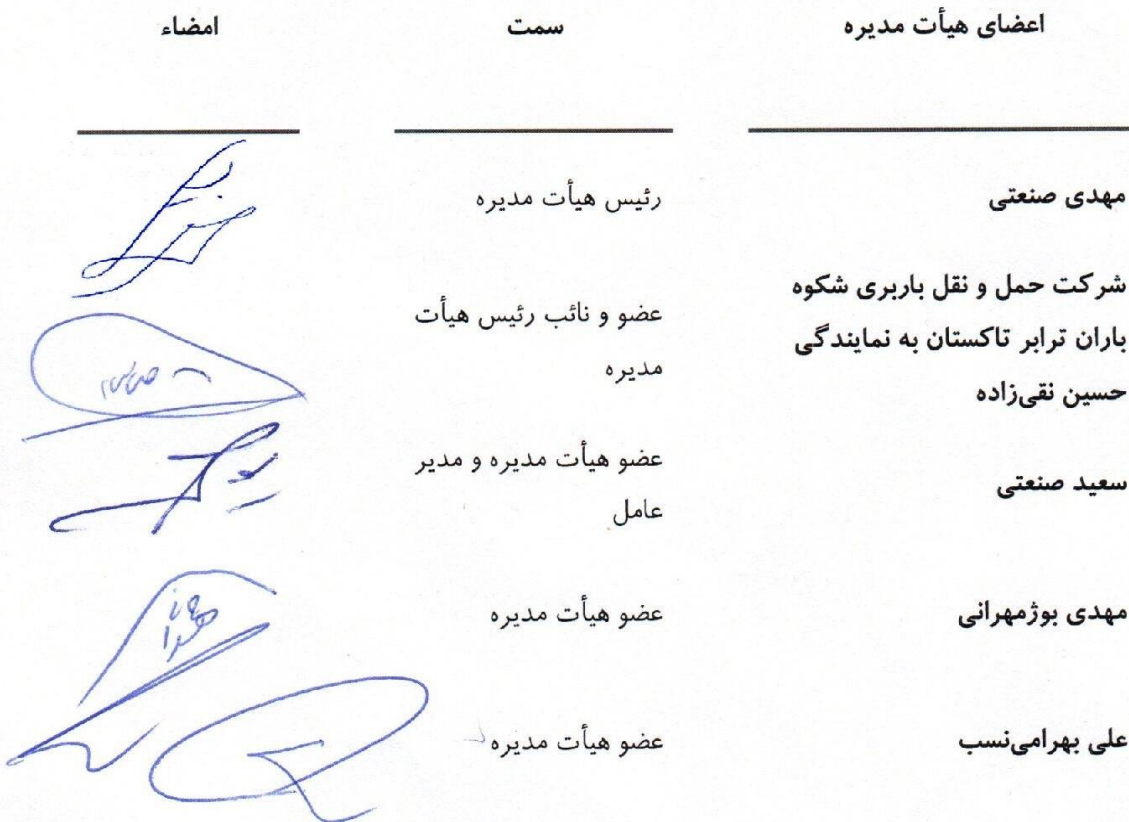 اعضای هیأت مدیره سمت امضاء
مهدی صنعتی رئیس هیأت مدیره
شرکت حمل و نقل باربری شکوه
باران ترابر تاکستان به نمایندگی
حسین نقی‌زاده
عضو و نائب رئیس هیأت
مدیره
سعید صنعتی
عضو هیأت مدیره و مدیر
عامل
مهدی بوژمهرانی عضو هیأت مدیره
علی بهرامی‌نسب عضو هیأت مدیره